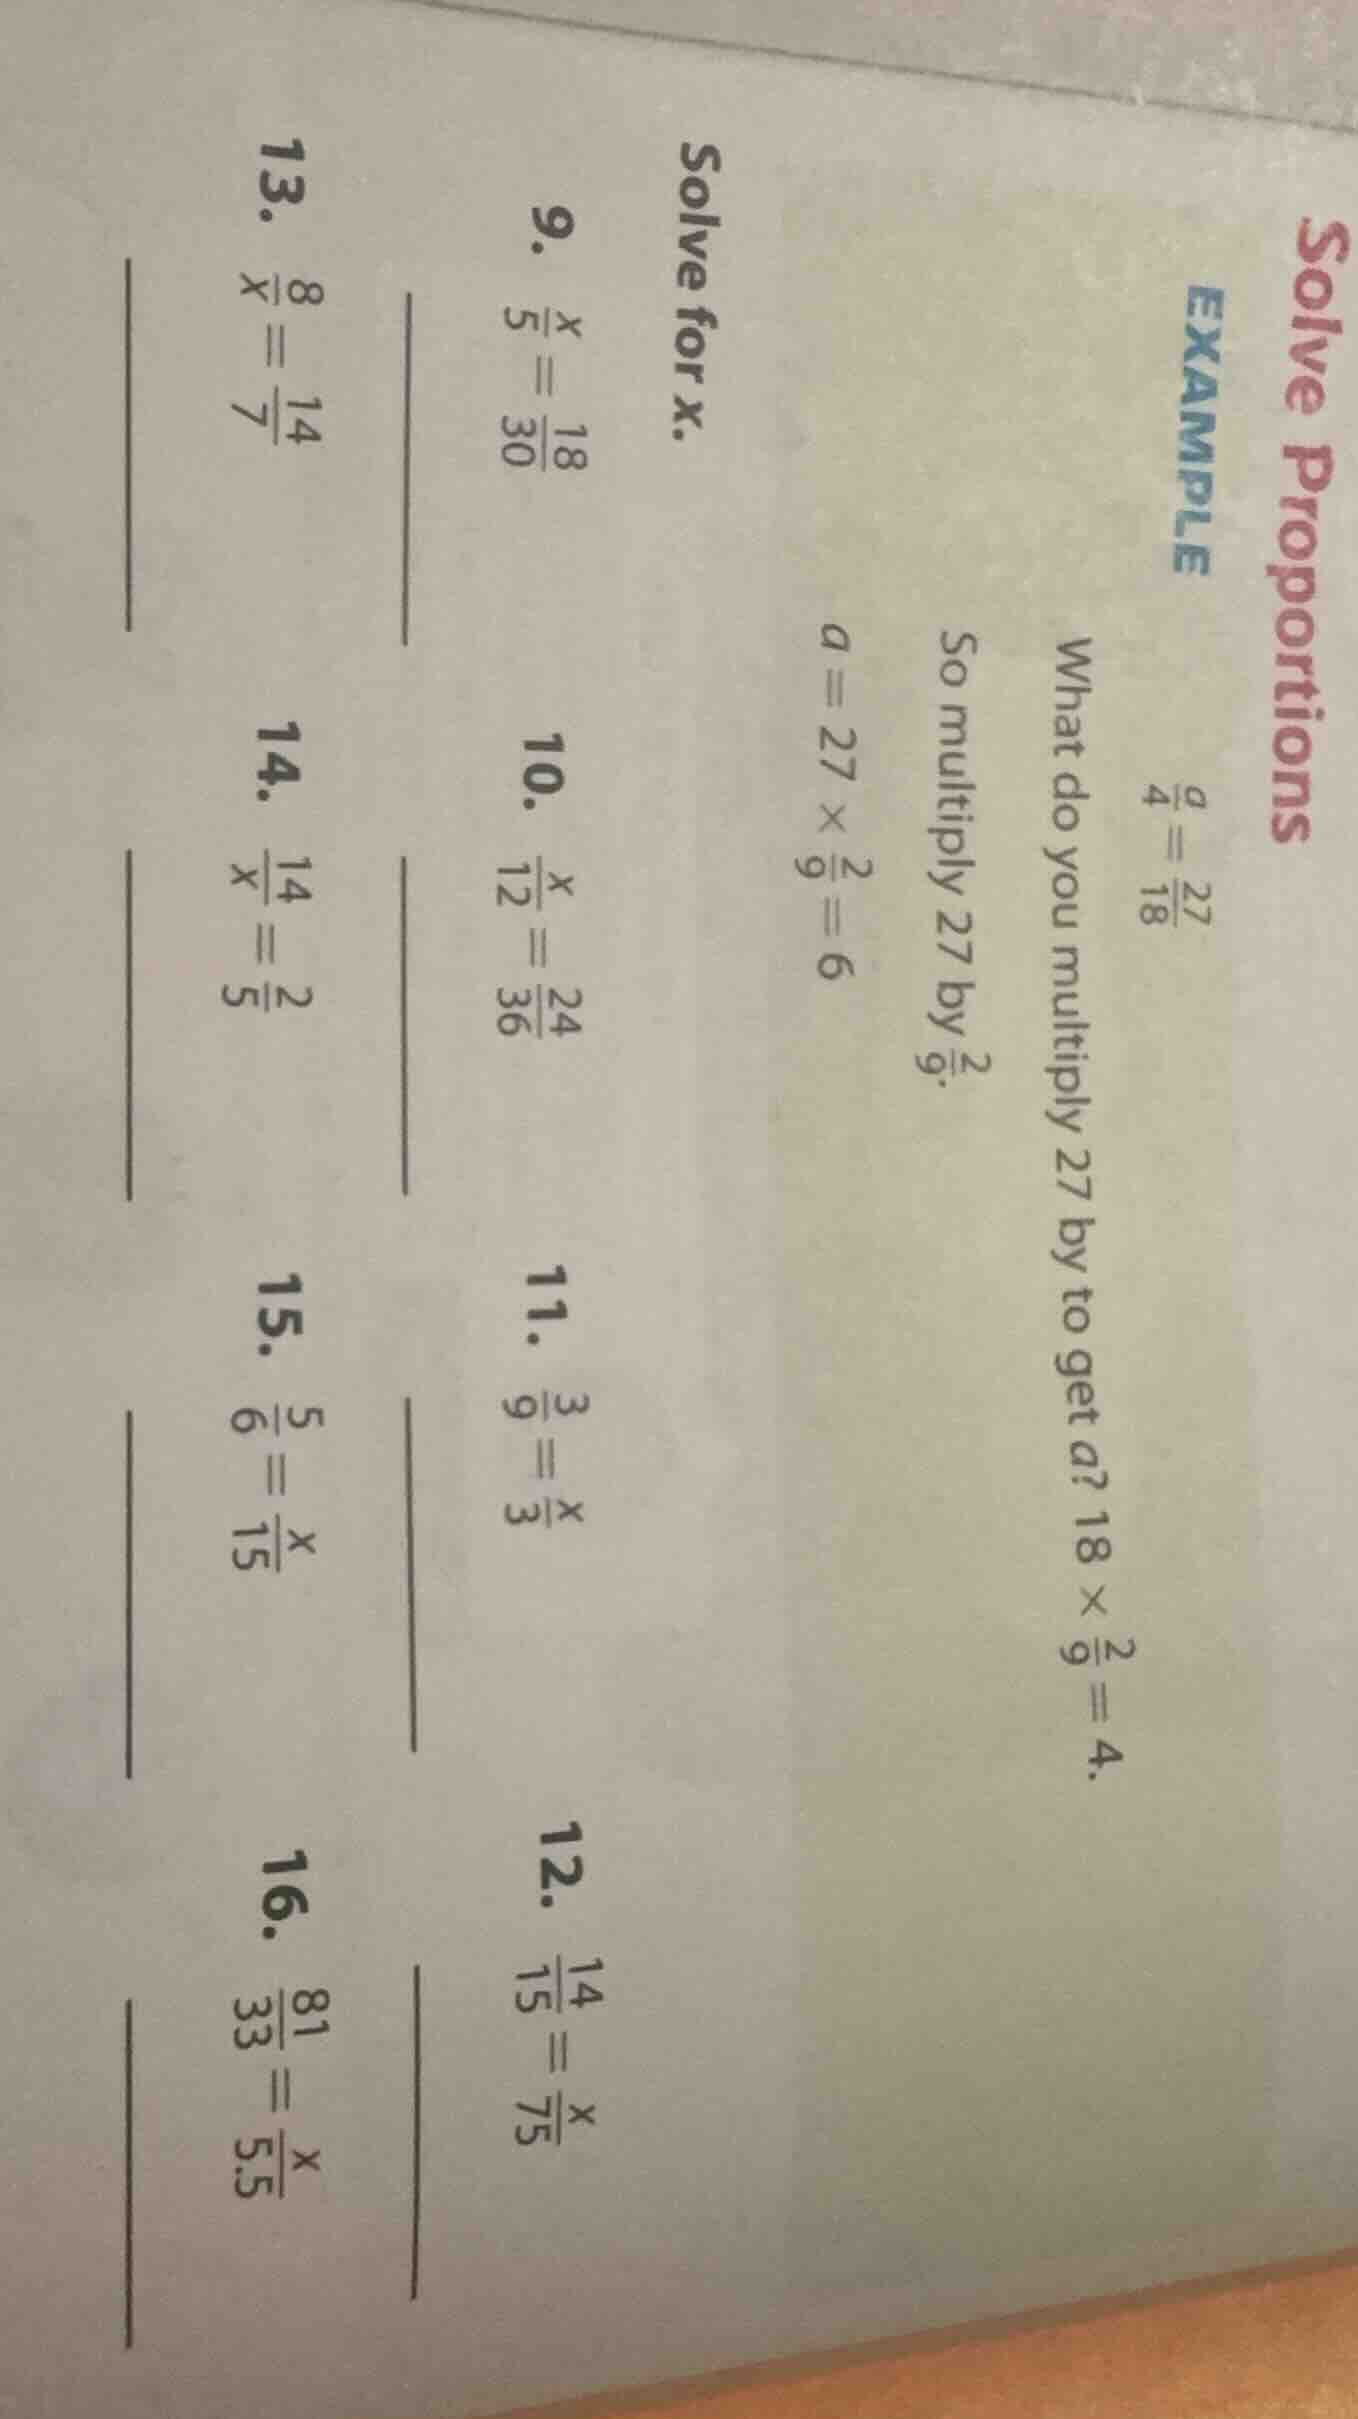 Solve Proportions
EXAMPLE a/4 = 27/18
What do you multiply 27 by to get a? 18 × 2/9 = 4.
So multiply 27 by 2/9.
a = 27 × 2/9 = 6
Solve for x.
9. x/5 = 18/30 10. x/12 = 24/36 11. 3/9 = x/3 12. 14/15 = x/75
13. 8/x = 14/7 14. 14/x = 2/5 15. 5/6 = x/15 16. 81/33 = x/5.5